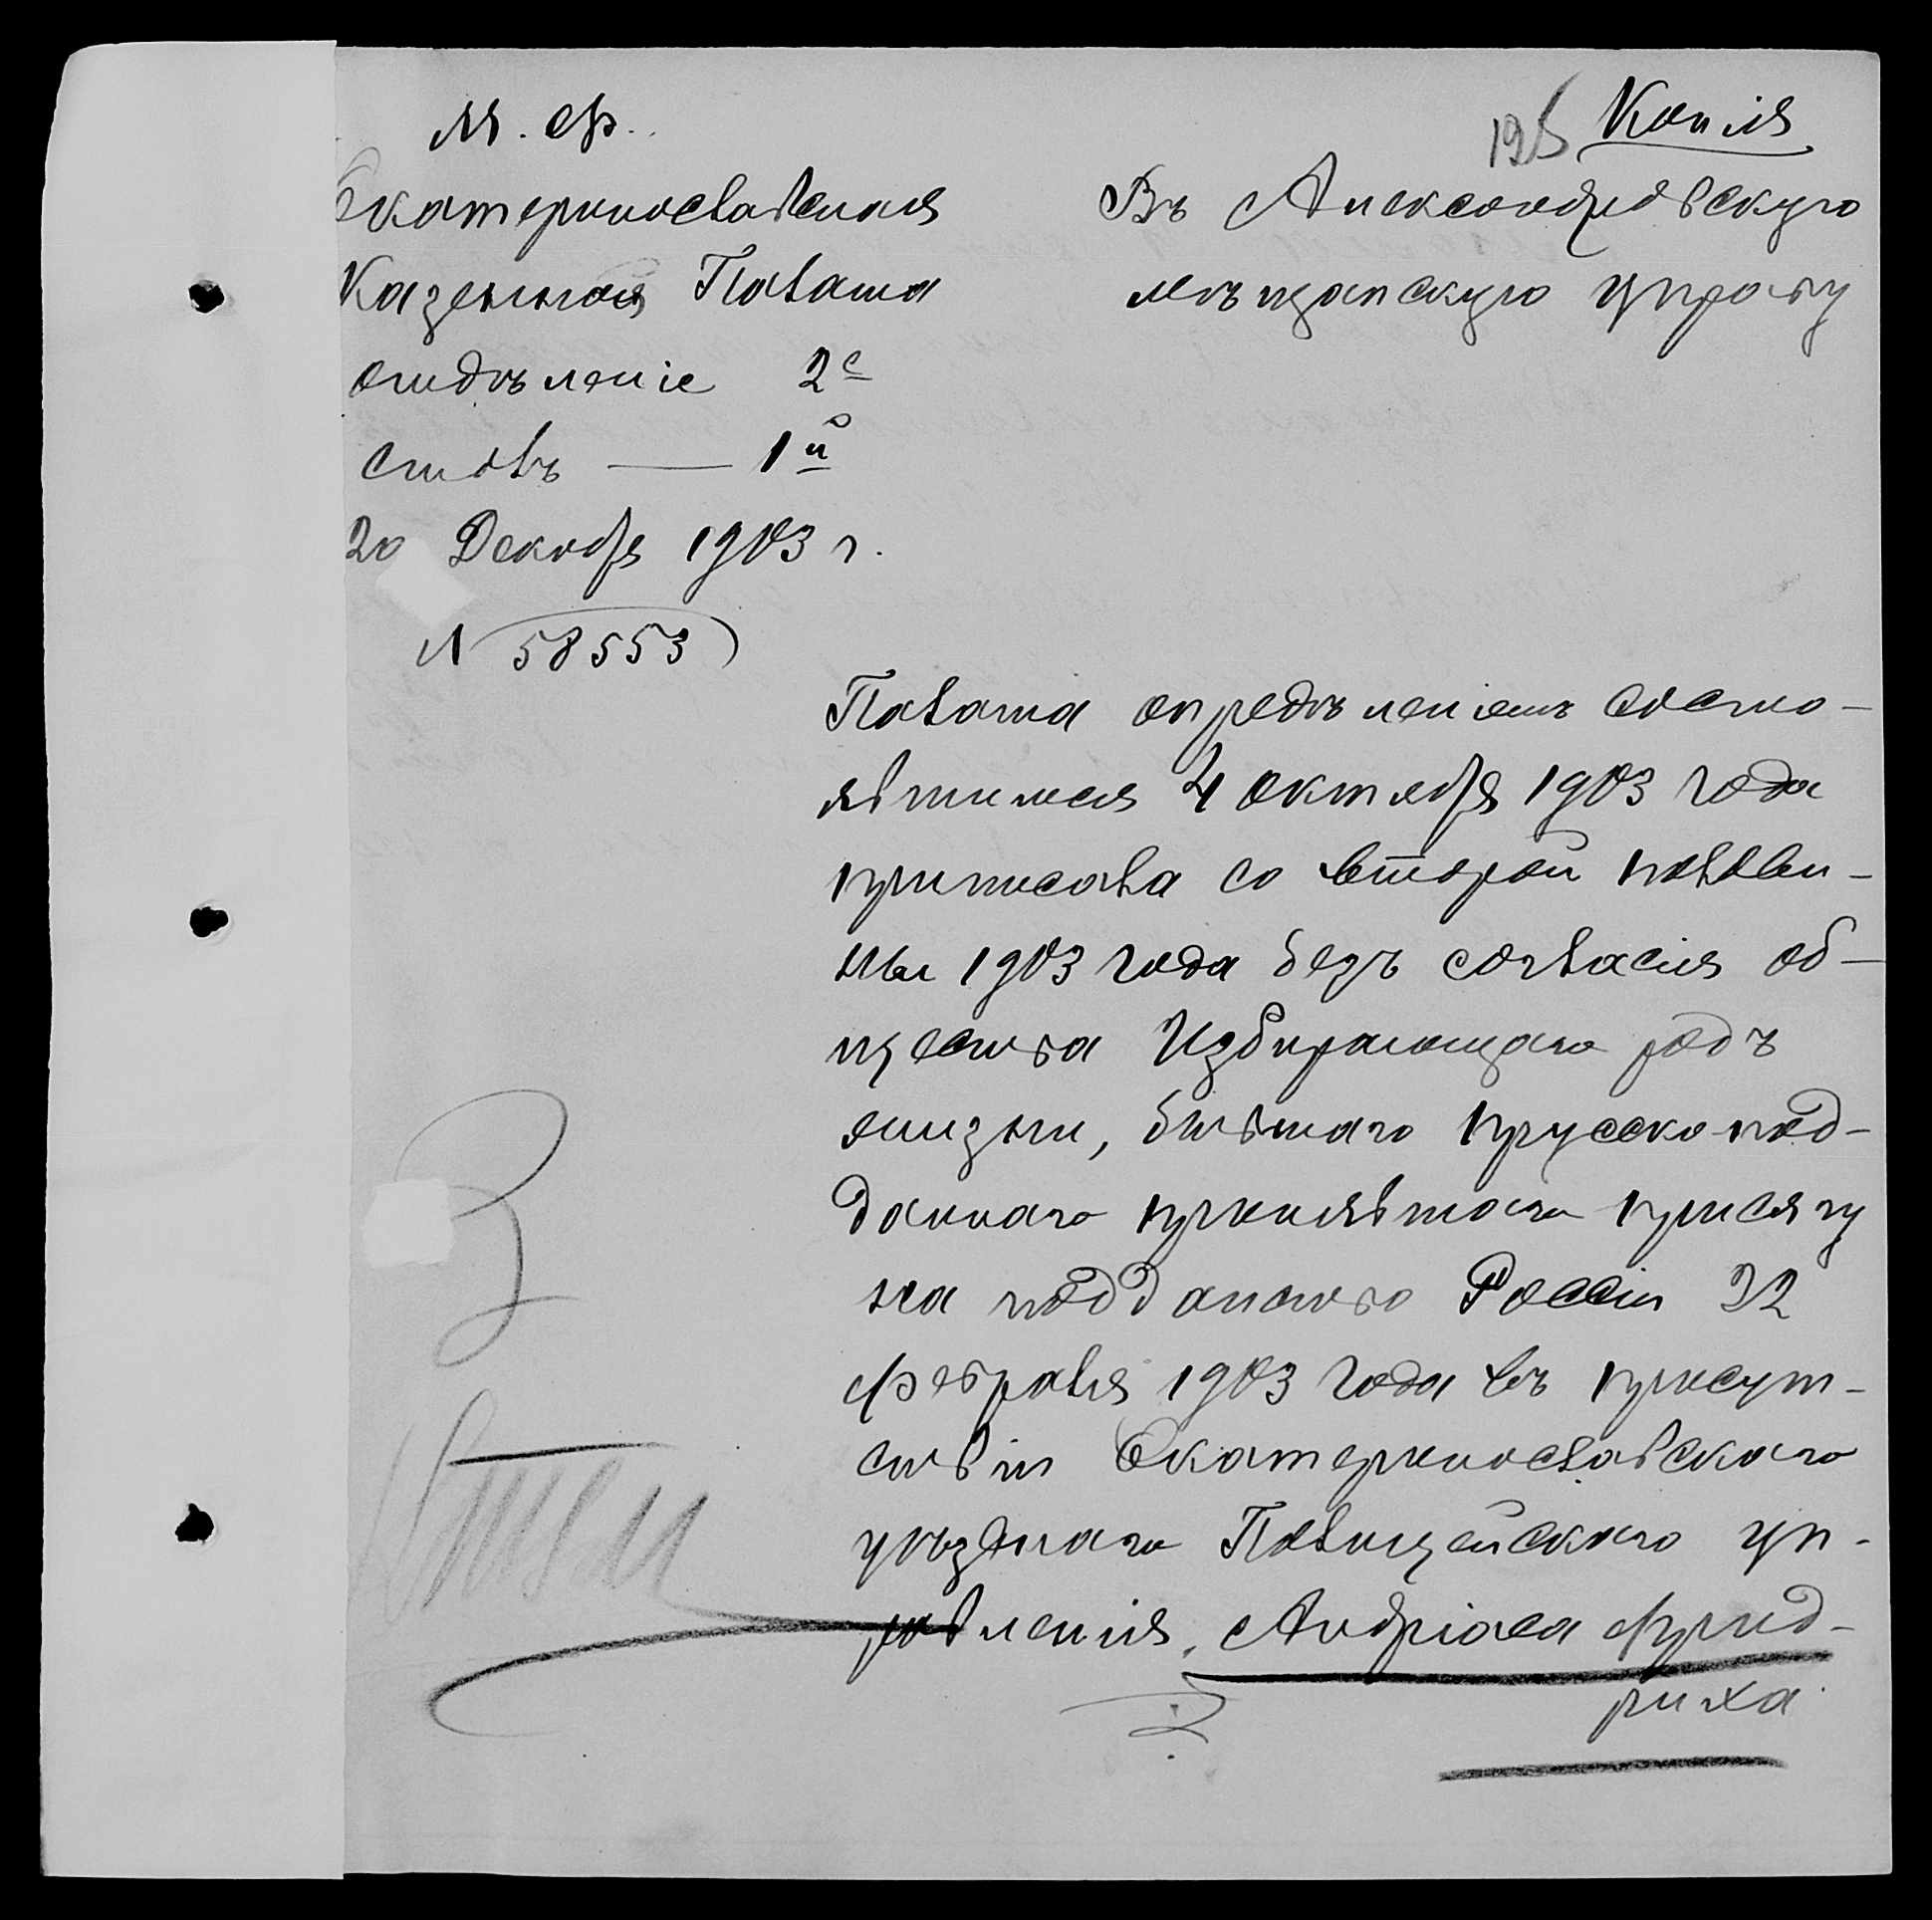 М. Ф.
195 Копія
Екатеринославская
Казенная Палата
отдѣленіе 2е
столъ — 1й
20 Декабря 1903 г.
N 58553
Въ Александровскую
мѣщанскую управу
Палата опредѣленіемъ состо-
явшимся 4 октября 1903 года
приписала со второй полови-
ны 1903 года безъ согласія об-
щества Избирающаго родъ
жизни, бывшаго прусско-под-
даннаго принявшаго присягу
на подданство Россіи 22
февраля 1903 года въ присут-
ствіи Екатеринославскаго
уѣзднаго Полицейскаго уп-
равленія, Андріаса Фрид-
риха